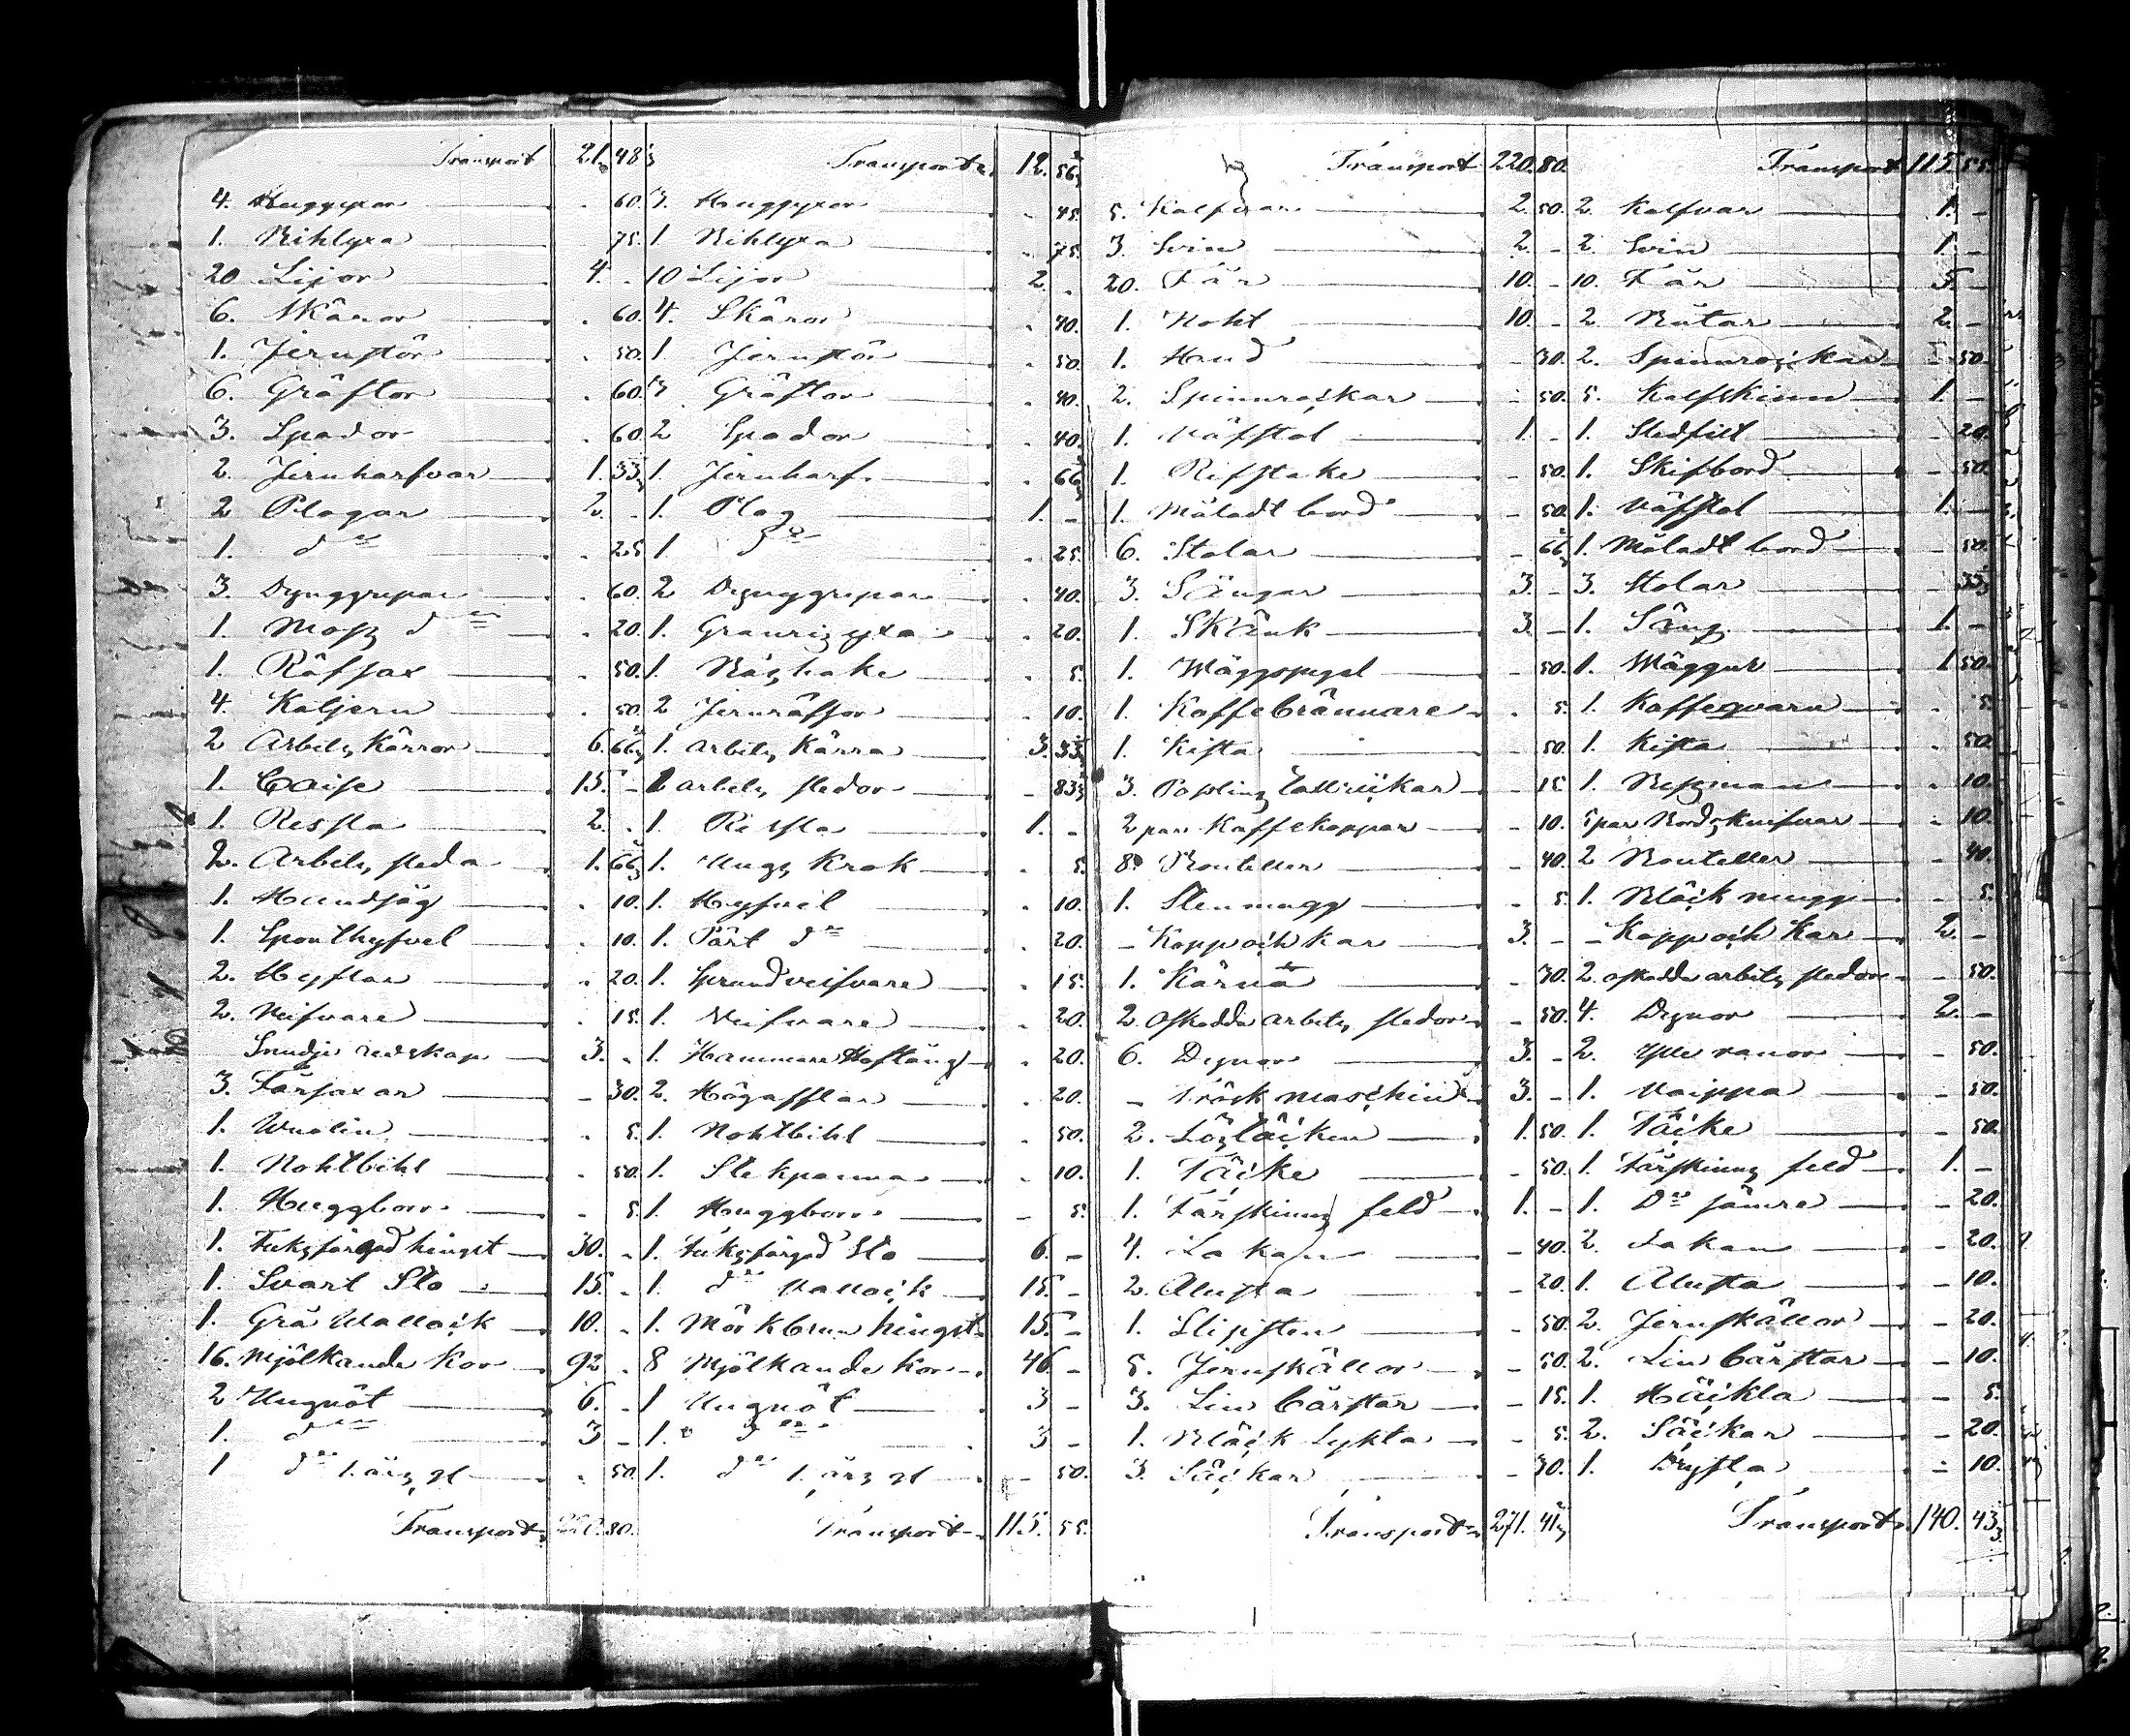 Transport 21. 48 1/3
4. Huggyxor . 60.
1. Bihlyxa 75.
20 Lijor 4. .
6. Skäror . 60.
1. Jernstör . 50.
6. Gräftor . 60.
3. Spador . 60.
2. Jernharfvar 1. 33 1/3
2 Plogar 2. -
1. d:o . 25
3. Dynggrepar . 60.
1. d:o . 20.
1. Räfsax . 50.
4. Koljern . 50
2 Arbets Kärror 6. 66 2/3
1. Chaise 15. -
1. Ressla 2. .
2. Arbets sleda 1. 66 2/3
1. Handsåg . 10.
1. Sponthyfvel . 10.
2. Hyflar . 20.
2. Neifvare . 15.
Smidje redskap 3. .
3. Fårsaxar - 30.
1. Wiolin . 5.
1. Nohtbiht . 50.
1. Huggborr - 5.
1. Fuksfärgad hingst 30. .
1. Svart Sto 15. .
1. Grå Wallack 10. .
16. Mjölkande Kor 92. .
2 Ungnöt 6. .
1. d:o 3 -
1 d:o 1. års gl . 50.
Transport 220. 80.
Transport 12. 56 2/3
3. Huggyxor . 45.
1. Bihlyxa . 75.
10 Lijor 2. .
4. Skäror . 40.
1. Jernstör . 50.
Gräftor . 40.
2 Spador . 40.
1. Jernharf . 66 2/3
1. Plog 1. -
1 d:o . 25.
2 Dynggrepar . 40.
1. . 20.
1. Båshake . 5.
2 Jernräfsor . 10.
1. Arbets Kärra 3. 33 1/3
2 arbets sledor - 83 1/3
1. Ressla 1. -
1. Ungs Krok . 5.
1. Hyfvel . 10.
1. Pärt d:o . 20.
1. . 15.
1. Neifvare . 20.
1. Hammare Hoftång . 20.
2. Högafflar . 20.
1. Nohtbiht . 50.
1. Stekpanna . 10.
1. Huggborr - 5.
1. Fuksfärgad Sto 6. -
1. d:o Vallack 15. -
1. Mörkbrun hingst 15. -
8 Mjölkande Kor 46. -
1 Ungnöt 3 -
1. d:o 3 -
1. d:o 1. års gl - 50.
Transport 115. 55.
Transport 220. 80.
5. Kalfvar 2. 50.
3. Svin 2 -
20. Får 10. -
1. Noht 10. -
1. Hund - 30.
2. Spinnråckar - 50.
1. Väfstol 1. -
1. Rifstake - 50.
1. Måladt bord - 50.
6. Stolar - 66 2/3
3. Sängar 3. -
1. Skänk 3. -
1. Wäggspegel - 50.
1. Kaffebrännare . 5.
1. Kista - 50.
3. Poslins tallrickar - 15
2 par Kaffekoppar - 10.
8. Bouteller - 40.
1. Stenmugg - 5.
- Kopp och kar 3. -
1. Kärna - 30.
2. oskodda arbets sledor - 50.
6. Dynor 3. -
- Tröskmaschin 3. -
2. Löstäcken 1. 50.
1. Täcke - 50.
1. Fårskinns feld 1. -
4. Lakan - 40.
2. Alusta - 20.
1. Slipsten - 50
5. Jernskållor - 50.
3. Lin bårstar - 15.
1. Bläck Lykta - 5.
3. Säckar - 30.
Transport 271. 41 2/3
Transport 115. 55.
2. Kalfvar 1. -
2. Svin 1. -
10. Får 5. -
2. Båtar 2. -
2. Spinnråckar - 50.
5. Kalfskinn 1. -
1. - 20.
1. Skifbord - 50.
1. Väfstol 1. -
1. Måladt bord - 50.
3. Stolar 33 1/3
1. Säng 1. -
1. Wäggur 1 50.
1. Kaffeqvarn . 5.
1. Kista . 50.
1. Besman . 10.
5 par Bordsknifvar - 10.
2 Bouteller - 40.
1. Bläck mugg - 5.
- Kopp och Kar 2. -
2. oskodda arbets sledor - 50.
4. Dynor 2. -
2. Ylle ranor - 50.
1. Vaippa - 50.
1. Täcke - 50.
1. Fårskinns feld 1. -
1. D:o sämre - 20.
2. Lakan - 20.
1. Alusta - 10.
2. Jernskållor - 20.
2. Lin bårstar - 10.
1. Häckla - 5.
2. Säckar - 20.
1. - 10.
Transport 140. 43 1/3